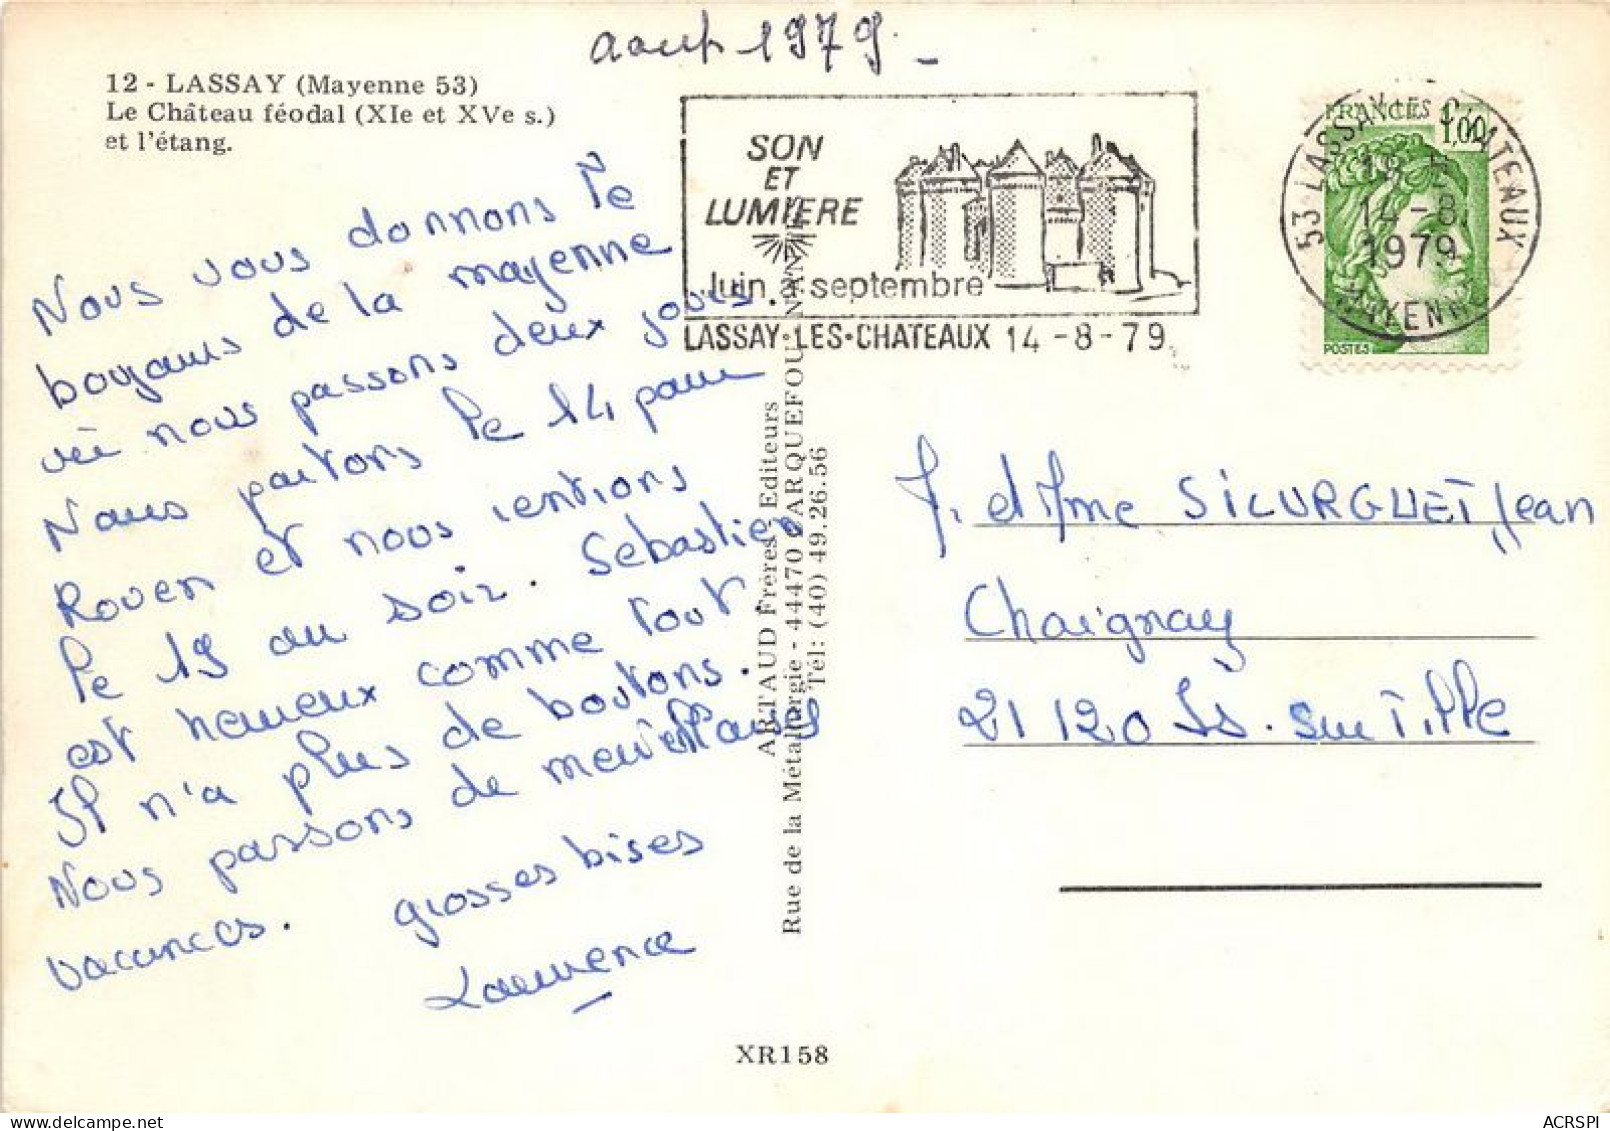 août 1979.
12 - LASSAY (Mayenne 53)
Le Château féodal (XIe et XVe s.)
et l'étang.
Nous vous donnons le
boyaus de la mayenne
où nous passons deux jours.
Nous partons le 14 pour
Rouen et nous rentrons
le 19 au soir. Sébastien
est heureux comme tout.
Il n'a plus de boutons.
Nous passons de merveilleuses
vacances. grosses bises
Laurence
SON
ET
LUMIERE
Juin à septembre
LASSAY·LES·CHATEAUX 14-8-79
FRANCE 1,00
POSTES
53 LASSAY LES CHATEAUX
18 H
14-8
1979
MAYENNE
ARTAUD Frères - Editeurs
Rue de la Métallurgie - 44470 CARQUEFOU
Tél: (40) 49.26.56
M. et Mme SILURGUET Jean
Chaignay
21120 Is. sur Tille
XR158
ACRSPI